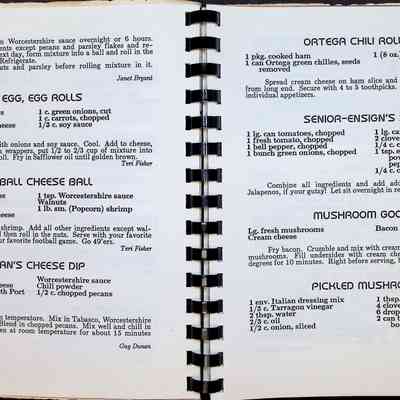 n Worcestershire sauce overnight or 6 hours.
edients except pecans and parsley flakes and re-
next day, form mixture into a ball and roll in the
Refrigerate.
uts and parsley before rolling mixture in it.
Janet Bryant
EGG, EGG ROLLS
1 c. green onions, cut
1 c. carrots, chopped
cheese
1/3 c. soy sauce
with onions and soy sauce. Cool. Add to cheese,
n wrappers, put 1/2 to 2/3 cup of mixture into
roll. Fry in Safflower oil until golden brown.
Teri Fisher
BALL CHEESE BALL
1 tsp. Worcestershire sauce
Walnuts
1 lb. sm. (Popcorn) shrimp
shrimp. Add all other ingredients except wal-
hen roll in the nuts. Serve with your favorite
our favorite football game. Go 49'ers.
Teri Fisher
AN'S CHEESE DIP
Worcestershire sauce
cheese
Chili powder
th Port
1/2 c. chopped pecans
n temperature. Mix in Tabasco, Worcestershire
Blend in chopped pecans. Mix well and chill in
en at room temperature for about 15 minutes
Guy Dunan
ORTEGA CHILI ROLL
1 pkg. cooked ham
1 (8 oz.
1 can Ortega green chilies, seeds
removed
Spread cream cheese on ham slice and
from long end. Secure with 4 to 5 toothpicks.
individual appetizers.
SENIOR-ENSIGN'S
1 lg. can tomatoes, chopped
1 lg. c
1 fresh tomato, chopped
2 c.
1 bell pepper, chopped
1 tsp.
1 bunch green onions, chopped
pow
pep
1/4 c. c
Combine all ingredients and add
Jalapenos, if your gutsy! Let sit overnight in
MUSHROOM GOO
Lg. fresh mushrooms
Bacon
Cream cheese
Fry bacon. Crumble and mix with cream
mushrooms. Fill undersides with cream chee
degrees for 10 minutes. Right before serving,
PICKLED MUSHRO
1 env. Italian dressing mix
1 thsp.
1/3 c. Tarragon vinegar
4 clove
2 thsp. water
6 drop
2/3 c. oil
2 can b
1/2 c. onion, sliced
bo